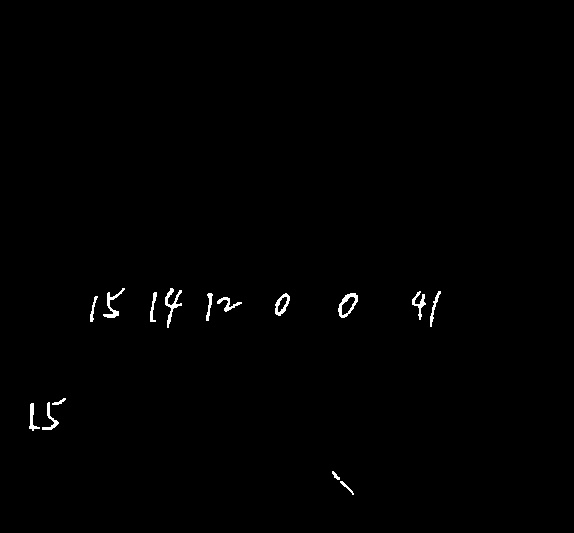 15 14 12 0 0 41
15